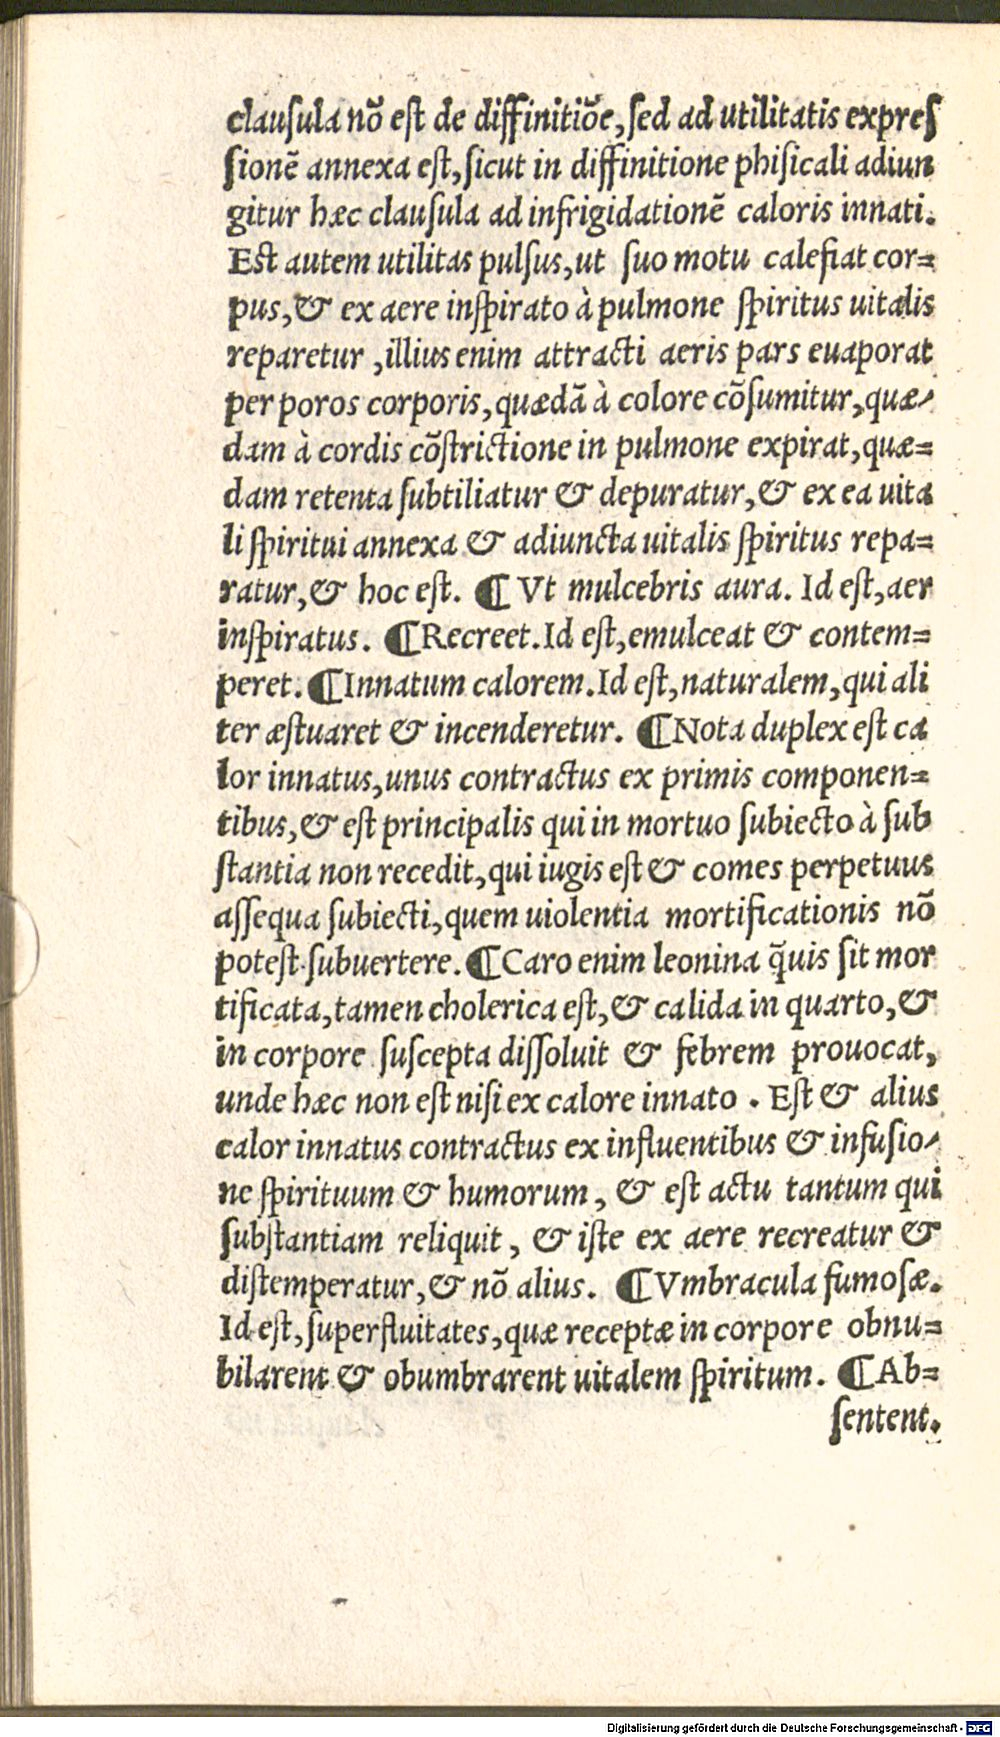 clauſula nō eſt de diffinitiōe, ſed ad utilitatis expreſ
ſionē annexa eſt, ſicut in diffinitione phiſicali adiun
gitur hæc clauſula ad infrigidationē caloris innati.
Eſt autem utilitas pulſus, ut ſuo motu calefiat cor=
pus, & ex aere inſpirato à pulmone ſpiritus uitalis
reparetur , illius enim attracti aeris pars euaporat
per poros corporis, quædā à colore cōſumitur, quæ⸗
dam à cordis cōſtrictione in pulmone expirat, quæ=
dam retenta ſubtiliatur & depuratur, & ex ea uita
li ſpiritui annexa & adiuncta uitalis ſpiritus repa=
ratur, & hoc eſt. ¶ Vt mulcebris aura. Id eſt, aer
inſpiratus. ¶ Recreet. Id eſt, emulceat & contem=
peret. ¶ Innatum calorem. Id eſt, naturalem, qui ali
ter æſtuaret & incenderetur. ¶ Nota duplex eſt ca
lor innatus, unus contractus ex primis componen=
tibus, & eſt principalis qui in mortuo ſubiecto à ſub
ſtantia non recedit, qui iugis eſt & comes perpetuus
aſſequa ſubiecti, quem uiolentia mortificationis nō
poteſt ſubuertere. ¶ Caro enim leonina q̄uis ſit mor
tificata, tamen cholerica eſt, & calida in quarto, &
in corpore ſuſcepta diſſoluit & febrem prouocat,
unde hæc non eſt niſi ex calore innato . Eſt & alius
calor innatus contractus ex influentibus & infuſio⸗
ne ſpirituum & humorum , & eſt actu tantum qui
ſubſtantiam reliquit , & iſte ex aere recreatur &
diſtemperatur, & nō alius. ¶ Vmbracula fumoſæ.
Id eſt, ſuperfluitates, quæ receptæ in corpore obnu=
bilarent & obumbrarent uitalem ſpiritum. ¶ Ab=
ſentent.
Digitalisierung gefördert durch die Deutsche Forschungsgemeinschaft - DFG